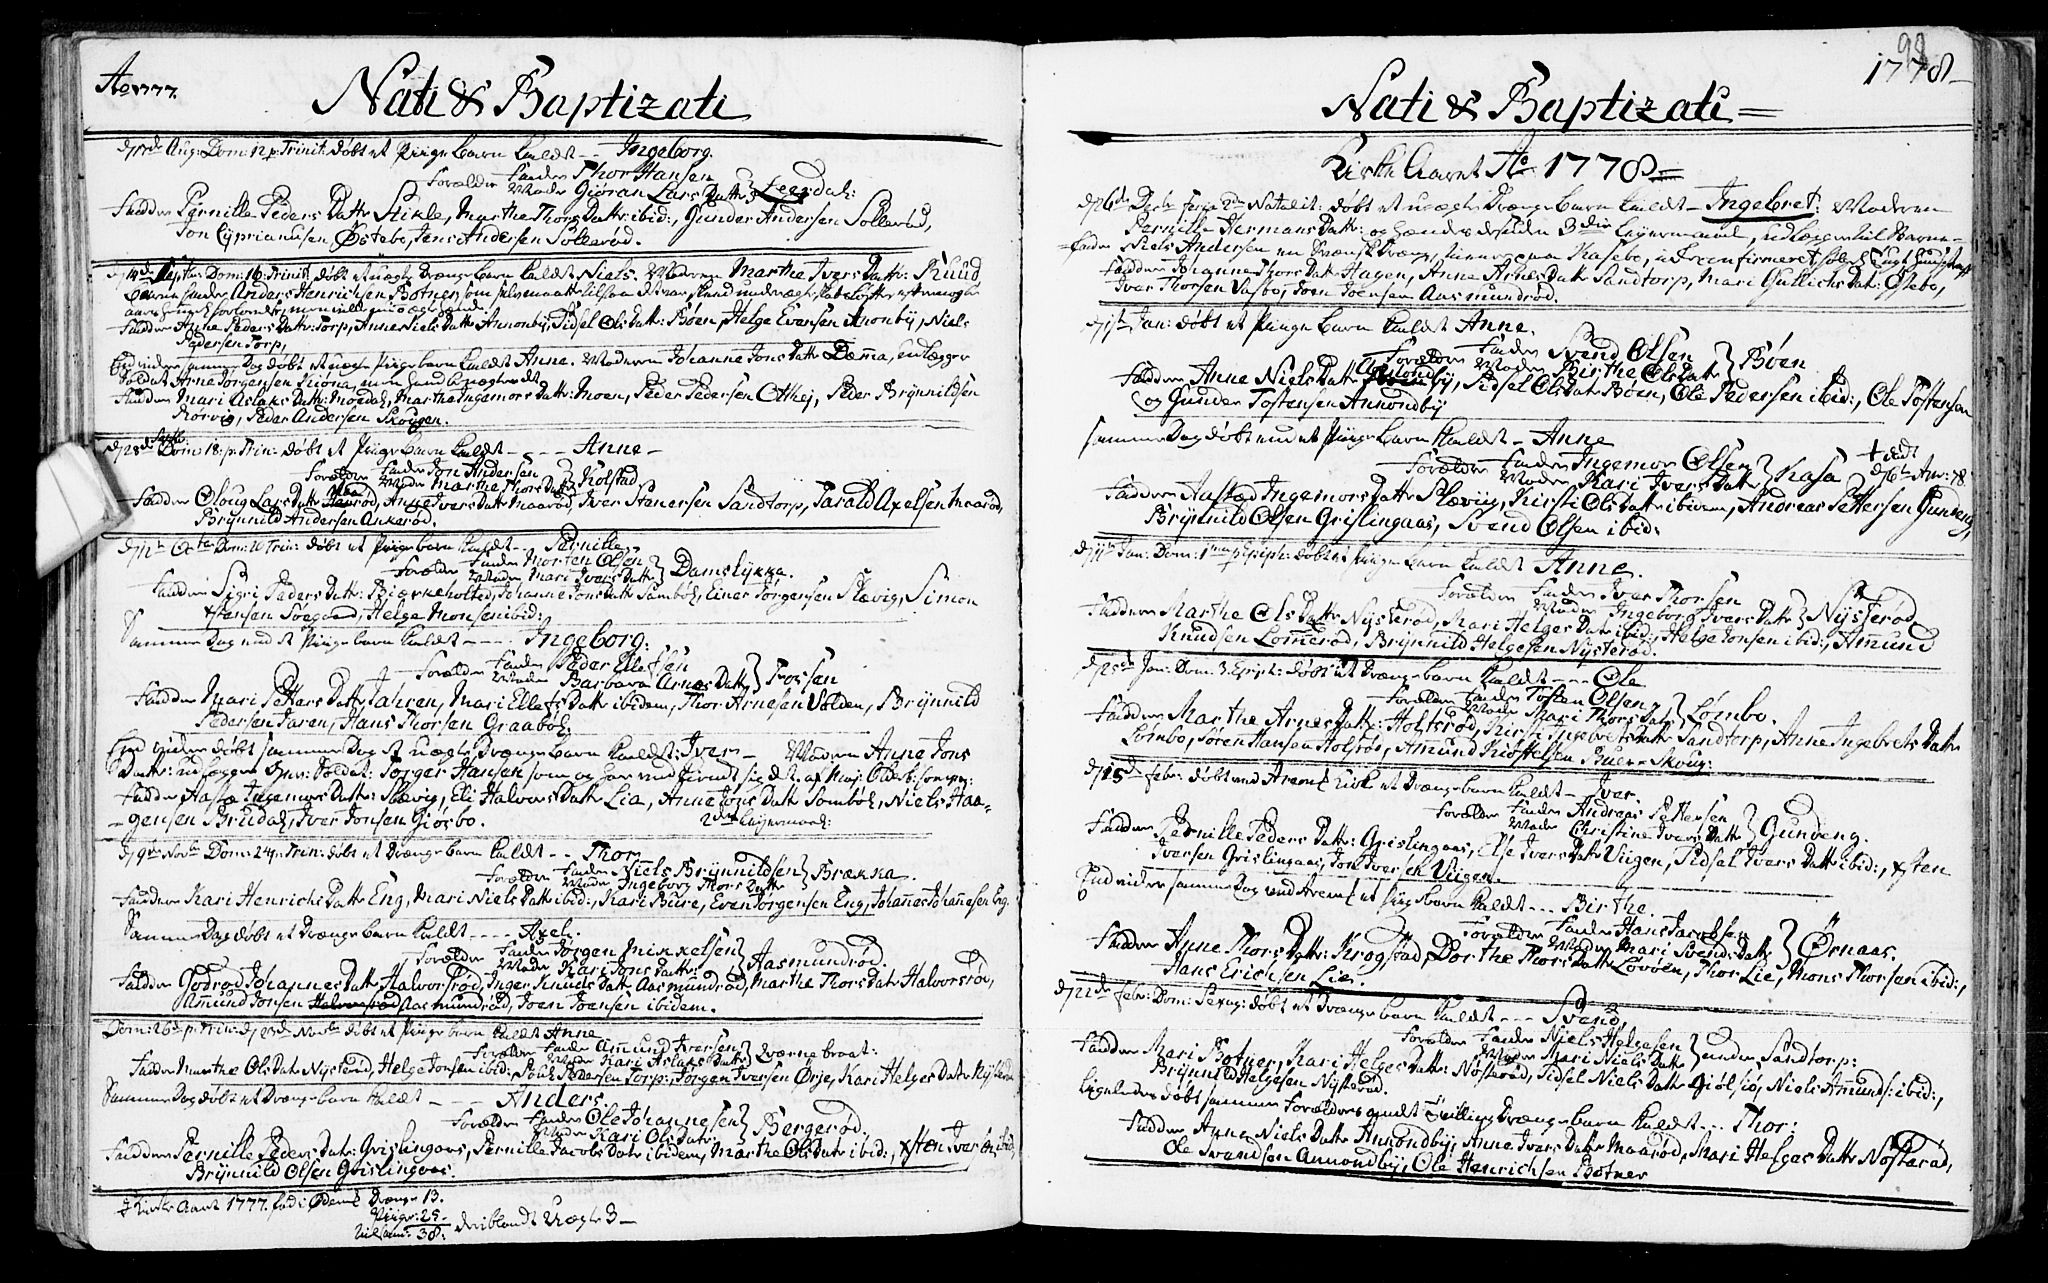 Ao 1777.
Nati & Baptizati
Aug: Dom: 12 p: Trinit: døbt et Pige barn kaldt -- Ingeborg.
Forældre Fader Thor Hansen
Moder Giøran Lars Datter } Leersdal:
Fadder Pernille Peders Datter Stikle, Marthe Thors Datter ibid:, Gunder Andersen Sollerød,
Jon Cyprianusen Østebo, Jens Andersen Sollerød.
Dom: 16 p: Trinit: døbt et uægte Drenge barn kaldt Niels. Moderen Marthe Ivers Datter: Ruud
Anders Henrichsen Botner, som
Fadder Anne Peders Datter: Torp, Anne Niels Datter Annonby, Sidsel Ols Datter: Bøen, Helge Evensen Anonby, Niels
Pedersen Torp,
døbt et uægte Pige barn kaldt Anne. Moderen Johanne Jons Datter Damma, udlægger
Soldat Arne Jørgensen
Fadder Mari Aslaks Datter: Moedal, Marthe Ingemors Datter: Moen, Peder Pedersen Othej, Peder Brynnildsen
Korvig, Peder Andersen Skougen.
d 28de Septbr Dom: 18: p: Trin: døbt et Pige barn kaldt ---- Anne -
Forældre Fader Jon Andersen
Moder Marthe Thors Datter } Kolstad
Fadder Olaug Lars Datter Maarød, Anne Ivers Datter Maarød, Iver Stenersen Sandtorp, Tarald Axelsen Maarød,
Brynnild Andersen Ankerød.
d 12te Octbr Dom: 20 Trin: døbt et Pige barn kaldt -- Pernille
Forældre Fader Morten Olsen
Moder Mari Ivers Datter } Damslykka.
Fadder Sigri Peders Datter: Biærkeholtet, Johanne Jons Datter Sambøl, Einer Jørgensen Slævig, Simon
Xstensen Søegaard, Helge Monsen ibid:
Samme Dag end et Pige barn kaldt ---- Ingeborg:
Forældre Fader Peder Ellefsen
Moder Barbara Arnes Datter } Fossen
Fadder Mari Petters Datter Jahren, Mari Ellefs Datter ibidem, Thor Arnesen Volden, Brynnild
Pedersen Jaren, Hans Thorsen Graabøl.
End videre døbt samme Dag et uægte Drenge barn kaldt: Iver - Moderen Anne Jons
Datter: udlægger Soldat: Jørger Hansen som og har
Fadder Aasta Ingemors Datter: Slævig, Eli Halvors Datter Lia, Anne Jons Datter Sombøl, Niels Haa-
-gensen Brudal, Iver Jonsen Giøsbo. 2det Leiermaal:
d 9de Novbr Dom: 24 p: Trin: døbt et Drenge barn kaldt -- Thor
Forældre Fader Niels Brynnildsen
Moder Ingeborg Thors Datter } Brækka.
Fadder Kari Henrichs Datter Eng, Mari Niels Datter ibid:, Kari Bure, Even Jørgensen Eng, Johannes Johannesen Eng.
Samme Dag døbt et Drenge barn kaldt ---- Axel.
Forældre Fader Jørgen Mikkelsen
Moder Kari Jons Datter } Aasmundrød.
Fadder Godrou Johannes Datter Halvorsrød, Inger Knuds Datter Aasmundrød, Marthe Thors Datter Halvorsrød,
Amund Jonsen Halvorsrød Aasmundrød, Joen Joensen ibidem.
Dom: 26 p: Trin: d 23de Novbr døbt et Pige barn kaldt Anne
Forældre Fader Amund Iversen
Moder Kari Aslaks Datter } Qværnebraat:
Fadder Marthe Ols Datter Nysterød, Helge Jonsen ibid:, Poul Pedersen Torp:, Jørgen Iversen Ørje, Kari Helges Datter Nysterød
Samme Dag døbt et Drenge barn kaldt ---- Anders.
Forældre Fader Ole Johannesen
Moder Kari Ols Datter } Bergerød.
Fadder Pernille Peders Datter: Grislingaas, Pernille Jacobs Datter ibidem, Marthe Ols Datter ibid:, Xsten Iversen ibid,
Brynnild Olsen Grislingaas.
I Kirke Aaret 1777. fød i Ødem: Drenge 13.
Piger: 25 -
tilsam: 38: deriblandt Uægte 3 -
98
1778 -
Nati & Baptizati =
Kirke Aaret Ao 1778 =
d 26de Decbr feria 2da Natalit: døbt et uægte Drenge barn kaldt - Ingebret: Moderen
Pernille Hermans Datter: og hendes 3die Leiermaal, udlægger til Barne-
=fader Niels Andersen en Svensk Dreng,
Fadder Johanne Thors Datter Hagen, Anne Arnes Datter Sandtorp, Mari Gullichs Datter: Østebo,
Iver Thorsen Vasbo, Joen Joensen Aasmundrød.
d 1ste Jan: døbt et Pige barn kaldt Anne.
Forældre Fader Svend Olsen
Moder Birthe Ols Datter } Bøen
Fadder Anne Niels Datter Annonby, Sidsel Ols Datter Bøen, Ole Pedersen ibid:, Ole Tostensen
og Gunder Tostensen Annondby
samme Dag døbt end et Pige barn kaldt - Anne
Forældre Fader Ingemor Olsen
Moder Kari Ivers Datter } Kasa
+ død d 6te Apr: 78.
Fadder Aastad Ingemors Datter Slævig, Kirsti Ols Datter ibidem, Andreas Pettersen Gundeng,
Brynnild Olsen Grislingaas, Svend Olsen ibid:
d 11te Jan: Dom: 1ma p Epiph: døbt et Pige barn kaldt Anne.
Forældre Fader Iver Thorsen
Moder Ingeborg Ivers Datter } Nysterød
Fadder Marthe Ols Datter Nysterød, Kari Helges Datter ibid:, Helge Jonsen ibid:, Amund
Knudsen Lommerød, Brynnild Helgesen Nysterød.
d 25de Jan: Dom: 3. Epiph: døbt et Drenge barn kaldt --- Ole
Forældre Fader Tosten Olsen
Moder Mari Thors Datter } Lømbo.
Fadder Marthe Arnes Datter: Holtsrød, Kirsti Ingebrets Datter Sandtorp, Anne Ingebrets Datter
Lømbo, Søren Hansen Holsrød, Amund Kiøstelsen Buer-Skoug:
d 15de Febr: døbt ved Aremk Kirke et Drenge barn kaldt - Iver.
Forældre Fader Andreas Pettersen
Moder Christine Ivers Datter } Gundeng.
Fadder Pernille Peders Datter: Grislingaas, Else Ivers Datter Viigen, Sidsel Ivers Datter ibid:, Xsten
Iversen Grislingaas, Jon Iversen Viigen.
End videre samme Dag ved Aremk et Pige barn kaldt --- Birthe.
Forældre Fader Hans Jacobsen
Moder Mari Svends Datter } Ørnaas.
Fadder Anne Thors Datter: Krogstad, Dorthe Thors Datter Lovøen, Thor Lie, Mons Thorsen ibid:,
Hans Erichsen Lie.
d 22de Febr: Dom: Sexag: døbt et Drenge barn kaldt --- Svend,
Forældre Fader Niels Helgesen
Moder Mari Niels Datter } under Sandtorp:
Fadder Mari Botner, Kari Helges Datter: Nøsterød, Sidsel Niels Datter Giølsiø, Niels Amunds: ibid:,
Brynnild Helgesen Nysterød.
Ligeledes døbt samme Forældres andet Tvilling Drenge barn kaldt --- Thor:
Fadder Anne Niels Datter Annondby, Anne Ivers Datter Maarød, Mari Helges Datter Nøsterød,
Ole Svendsen Annondby, Ole Henrichsen Botner